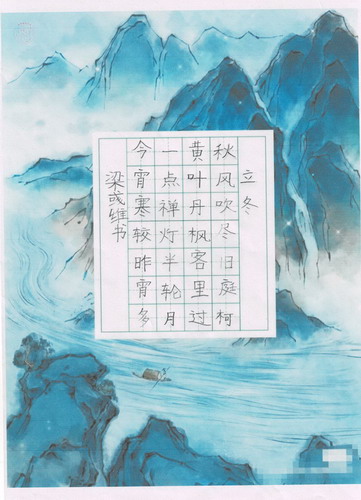 立冬
秋风吹尽旧庭柯
黄叶丹枫客里过
一点禅灯半轮月
今宵寒较昨宵多
梁彧维书